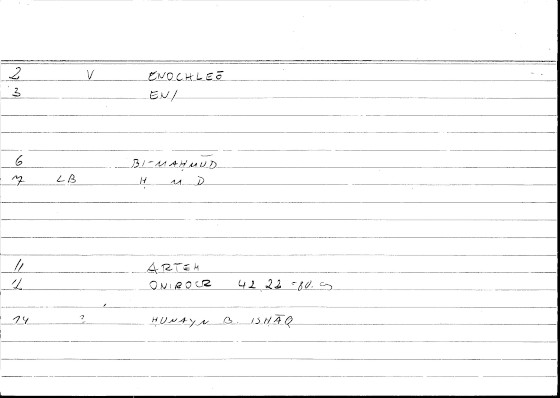 2 V ENOCHLEĒ
3 EN/
6 BI-MAḤMŪD
7 LB Ḥ M D
11 ARTEM
12 ONIROCR 42 22
14 ? ḤUNAYN B. ISḤĀQ